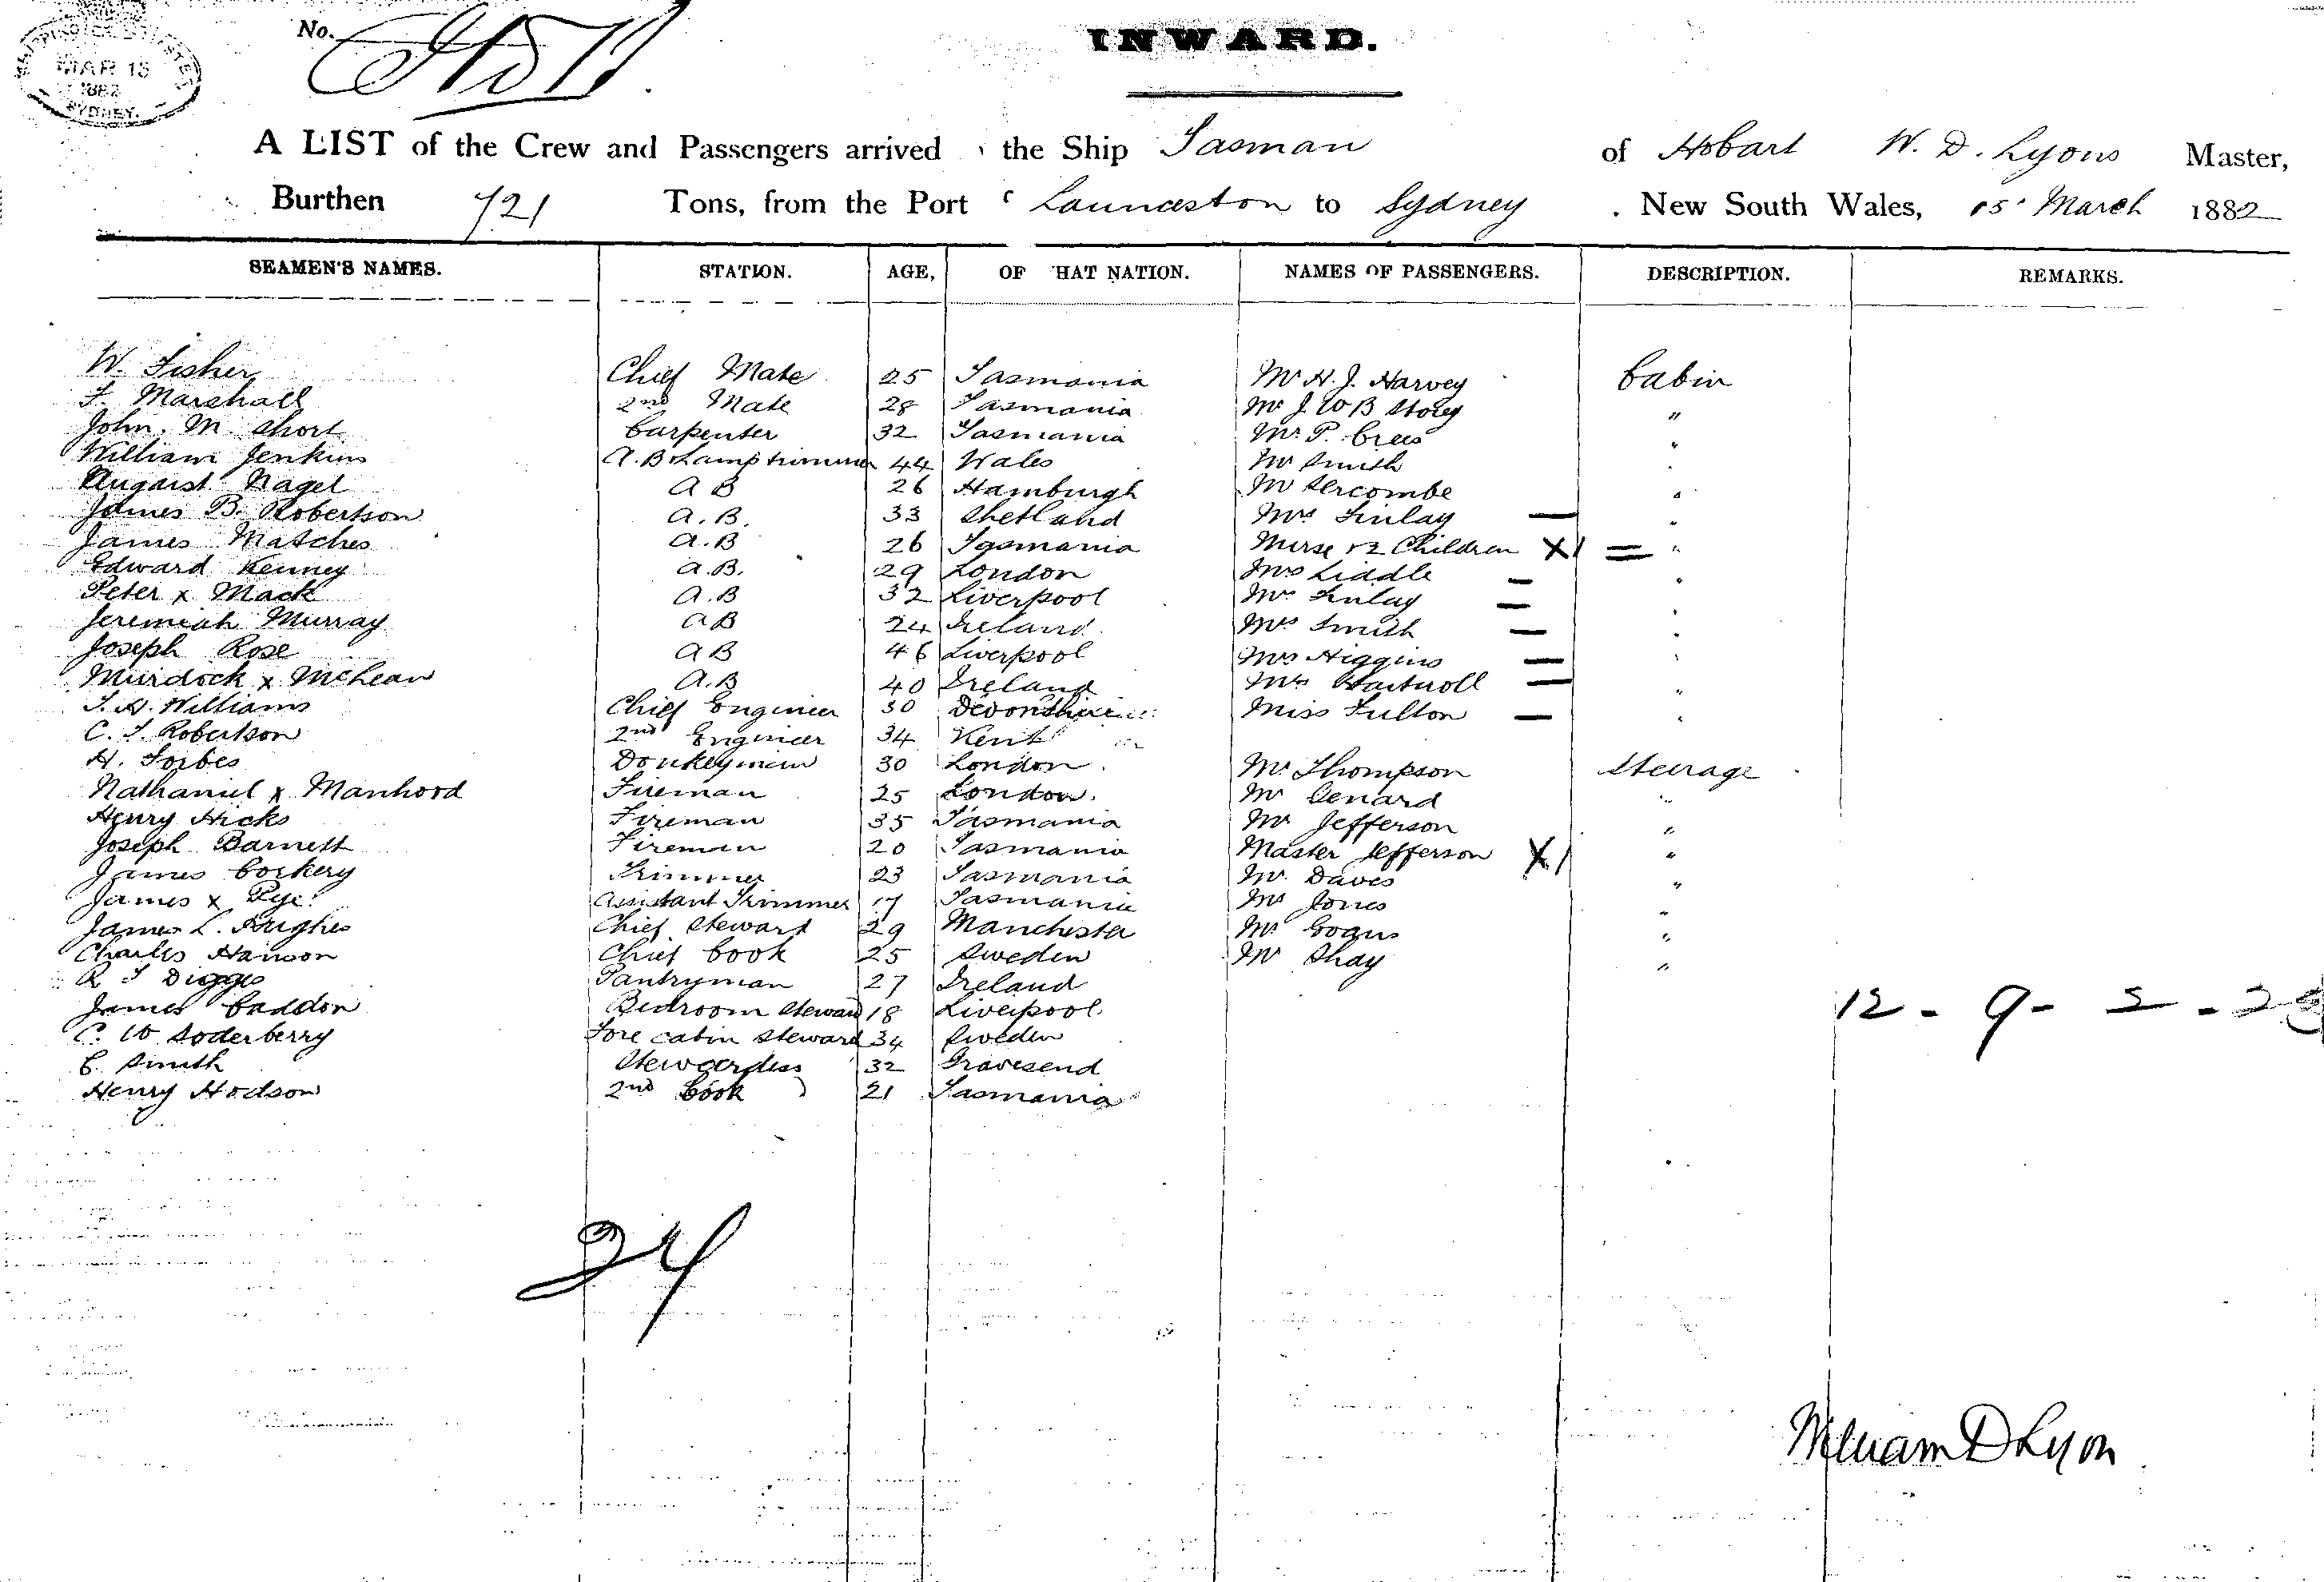 MAR 15
1882
SYDNEY.
No.
INWARD.
A LIST of the Crew and Passengers arrived the Ship Tasman of Hobart W. D. Lyons Master,
Burthen 721 Tons, from the Port Launceston to Sydney New South Wales, 15 March 1882
SEAMEN'S NAMES. STATION. AGE, OF HAT NATION. NAMES OF PASSENGERS. DESCRIPTION. REMARKS.
W. Fisher Chief Mate 25 Tasmania Mr H. J. Harvey Cabin
F. Marshall 2nd Mate 28 Tasmania Mr J. W B Storey "
John. M. Short Carpenter 32 Tasmania Mr P. "
William Jenkins A.B & Lamptrimmer 44 Wales Mr Smith "
August Nagel A B 26 Hamburgh Mr Sercombe "
James B. Robertson A.B. 33 Shetland Mrs Finlay — "
James Matches A.B 26 Tasmania Nurse & 2 Children X1 = "
Edward Kenney A.B. 29 London Mrs Liddle — "
Peter x Mack A.B 32 Liverpool Mrs Finlay — "
Jeremiah Murray A B 24 Ireland Mrs Smith — "
Joseph Rose A B 46 Liverpool Mrs Higgins — "
Murdock x McLean A.B 40 Ireland Mrs Hartnoll — "
T. H. Williams Chief Engineer 30 Devonshire Miss Fulton — "
C. J. Robertson 2nd Engineer 34 Kent
H. Forbes Donkeyman 30 London. Mr Thompson Steerage
Nathaniel x Manhord Fireman 25 London. Mr Lenard "
Henry Hicks Fireman 35 Tasmania Mr Jefferson "
Joseph Barnett Fireman 20 Tasmania Master Jefferson X1 "
James Corkery Trimmer 23 Tasmania Mr Daves "
James x Pye Assistant Trimmer 17 Tasmania Mr Jones "
James L. Hughes Chief Steward 29 Manchester Mr "
Charles Hanson Chief Cook 25 Sweden Mr Shay "
R J Diggs Pantryman 27 Ireland
James Caddon Bedroom Steward 18 Liverpool
C. W. Soderberry Fore Cabin Steward 34 Sweden
E. Smith Stewardess 32 Gravesend
Henry Hodson 2nd Cook 21 Tasmania
12 - 9 - 2 -
24
William D Lyon